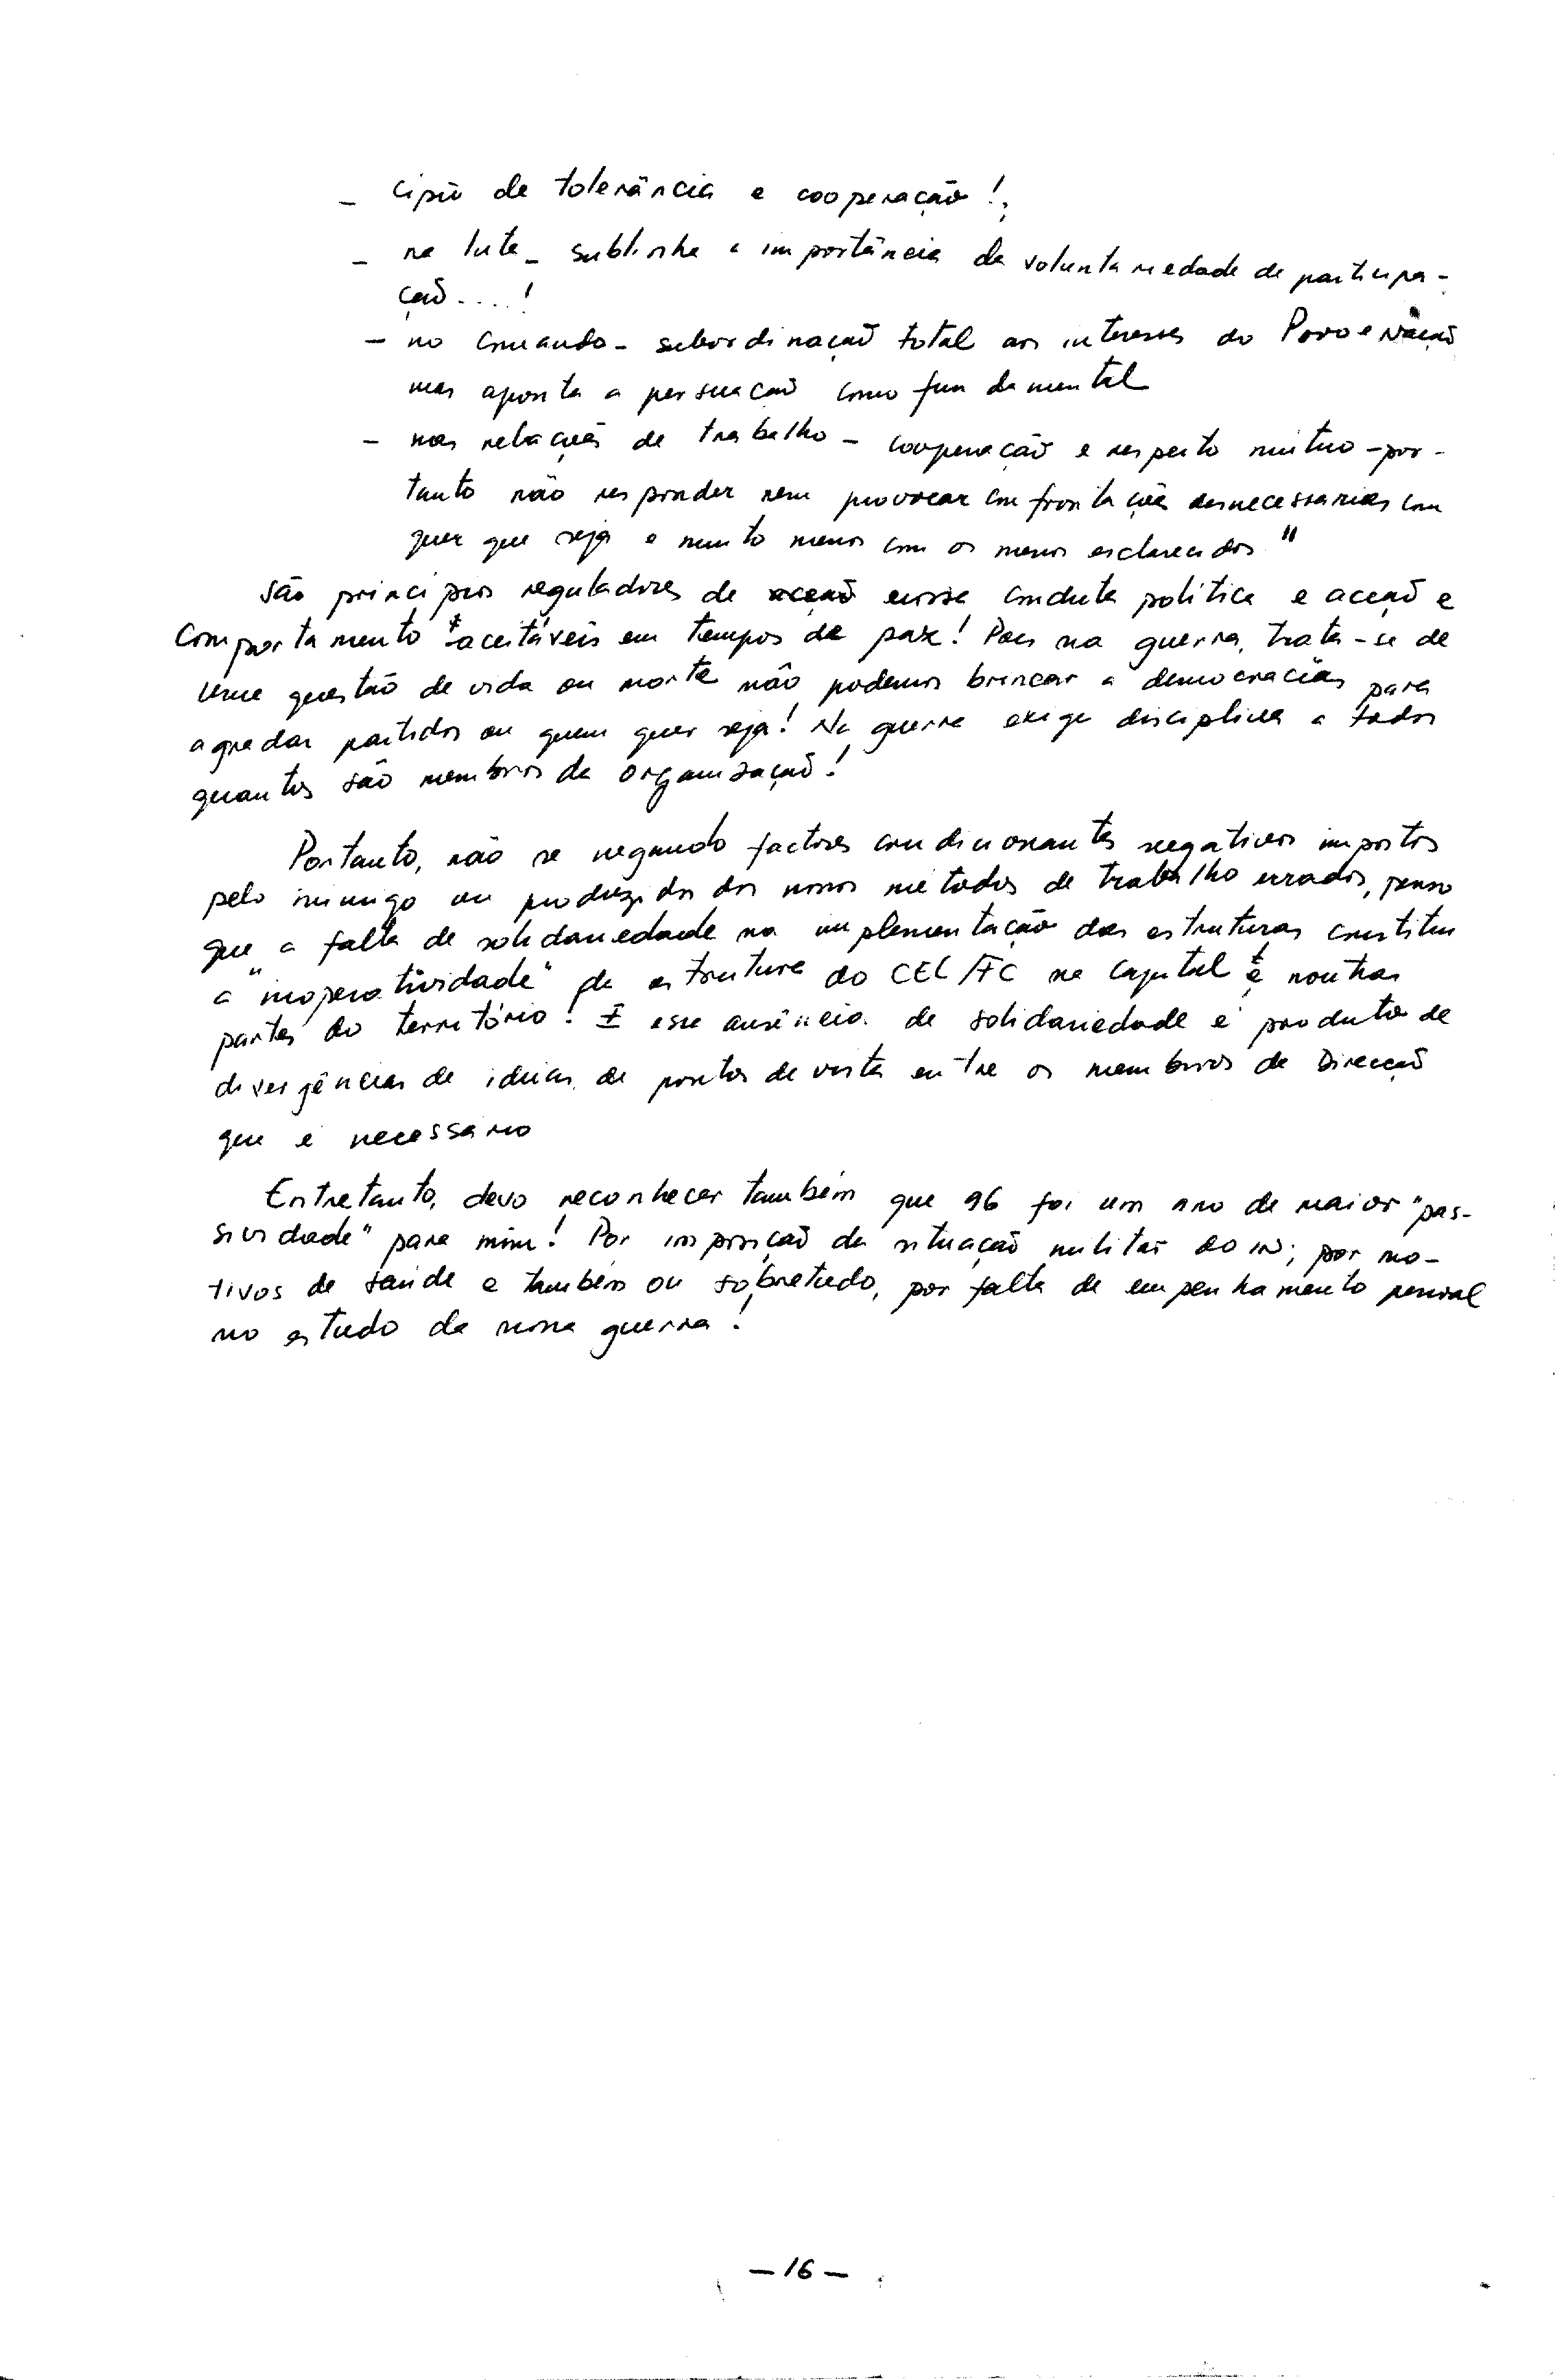 - cipio de tolerância e cooperação!;
- na luta - sublinha a importância da voluntariedade de participa-
ção....!
- no comando - subordinação total aos interesses do Povo e Nação
mas aponta a persuação como fundamental
- nas relações de trabalho - cooperação e respeito mútuo - por-
tanto não responder nem provocar confrontações desnecessarias com
quer que seja e muito menos com os menos esclarecidos"
são principios reguladores de nossa conduta politica e acção e
comportamento aceitáveis em tempos de paz! Pois na guerra, trata-se de
uma questão de vida ou morte não podemos brincar a democracias para
agradar partidos ou quem quer seja! Na guerra exige disciplina a todos
quantos são membros da organização!
Portanto, não se negando factores condicionantes negativos impostos
pelo inimigo ou produzidos dos nossos métodos de trabalho errados, penso
que "a falta de solidariedade na implementação das estruturas constitui
a "inoperatividade" da estrutura do CEL/FC na capital e noutras
partes do território! E essa ausência de solidariedade é produto de
divergências de ideias, de pontos de vista entre os membros da Direcção
que é necessario
Entretanto, devo reconhecer também que 96 foi um ano de maior "pas-
sividade" para mim! Por imposição da situação militar do in; por mo-
tivos de saúde e também ou sobretudo, por falta de empenhamento pessoal
no estudo da nossa guerra!
- 16 -